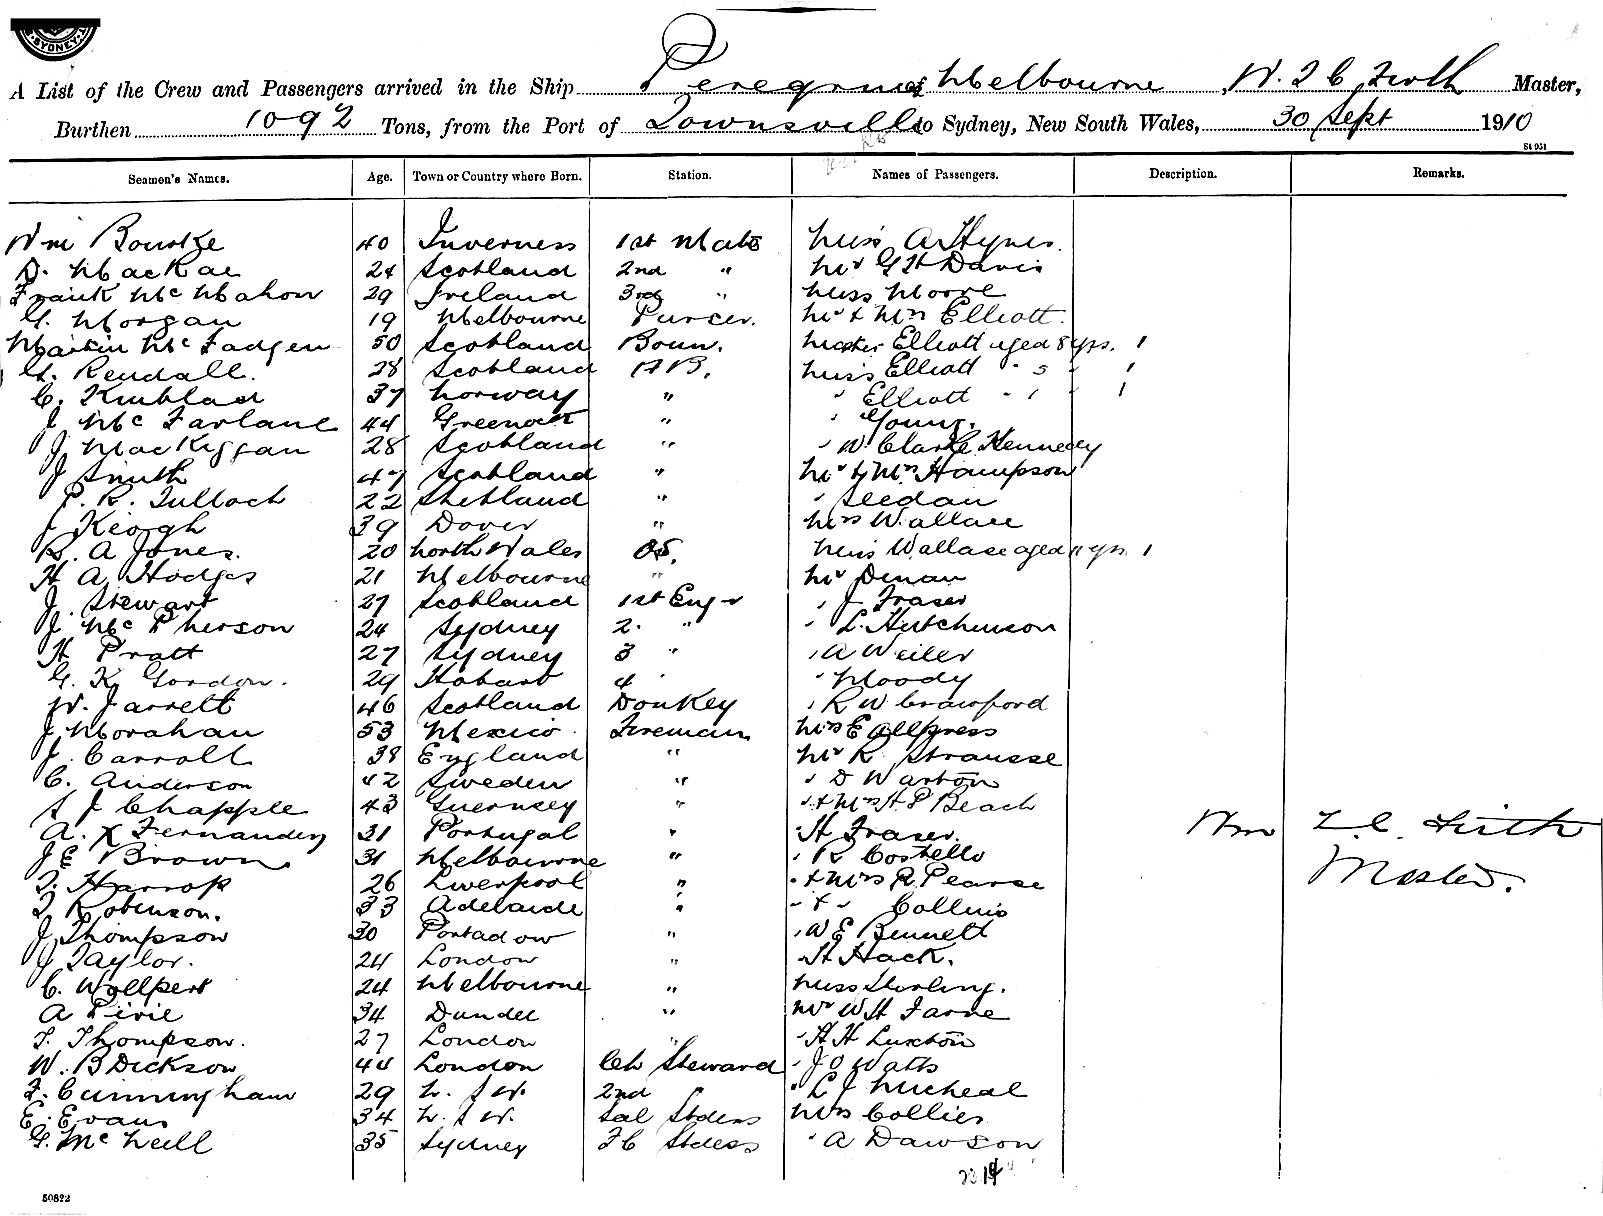 SYDNEY
A List of the Crew and Passengers arrived in the Ship Peregrine of Melbourne, W. F C Firth Master,
Burthen 1092 Tons, from the Port of Townsville to Sydney, New South Wales, 30 Sept 1910
St 951
Seamen's Names. Age. Town or Country where Born. Station. Names of Passengers. Description. Remarks.
Wm Bourke 40 Inverness 1st Mate Miss A Hynes.
D. MacRae 24 Scotland 2nd " Mr G H Davis
Frank McMahon 29 Ireland 3rd " Miss Moore
G. Morgan 19 Melbourne Purcer. Mr & Mrs Elliott.
Martin McFadgen 50 Scotland Bosun. Master Elliott aged 8 yrs. 1
G. Kendall. 28 Scotland AB. Miss Elliott " 5 " 1
C. Kinblad 37 Norway " " Elliott " 1 " 1
J McFarlane 44 Greenock " " Young.
J MacKiggan 28 Scotland " " W Clarke Kennedy
J Smith 47 Scotland " Mr & Mrs Hampson
P. R. Tulloch 22 Shetland " " Seedan
J Keogh 39 Dover " Mrs Wallace
R. A Jones. 20 North Wales OS. Miss Wallace aged 11 yrs. 1
H A Hodges 21 Melbourne " Mr Dinan
J. Stewart 27 Scotland 1st Engr " J Fraser
J. McPherson 24 Sydney 2. " " L. Hutchinson
H Pratt 27 Sydney 3 " " A Weiler
G. K Gordon. 29 Hobart 4 " " Moody
W. Jarrett 46 Scotland Donkey " R W Crawford
J Morahan 53 Mexico Fireman Mrs E Allpress
J. Carroll 38 England " Mr R. Strausse
C. Anderson 42 Sweden " " D Warton
S J Chapple 43 Guernsey " " & Mrs H P Beach
A. X Fernandez 31 Portugal " " H Fraser. Wm F. C. Firth
J E Brown. 31 Melbourne " " R Costello Master.
T. Harrop 26 Liverpool " " & Mrs R. Pearse
T Robinson. 33 Adelaide " " & " Collins
J Thompson 30 Portadow " " W E Bennett
J Taylor. 24 London " " H Hack.
C. Wollpert 24 Melbourne " Miss Sterling.
A Pirie 34 Dundee " Mr W H Farne
F. Thompson. 27 London " " H H Luxton
W. B Dickson 44 London Ch Steward " J O Watts
F. Cunningham 29 N. S W. 2nd " L J Micheal
E. Evans 34 N. S W. Sal Stdess Mrs Collier
G. McNeill 35 Sydney FC Stdess " A Dawson
50822